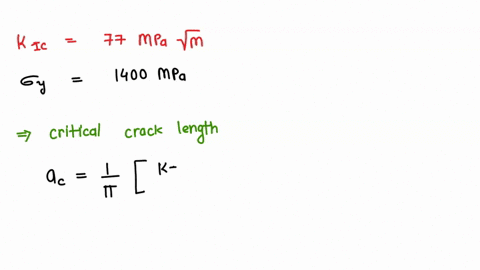 K_Ic = 77 MPa √m
σ_y = 1400 MPa
⇒ critical crack length
a_c = 1/π [ K-